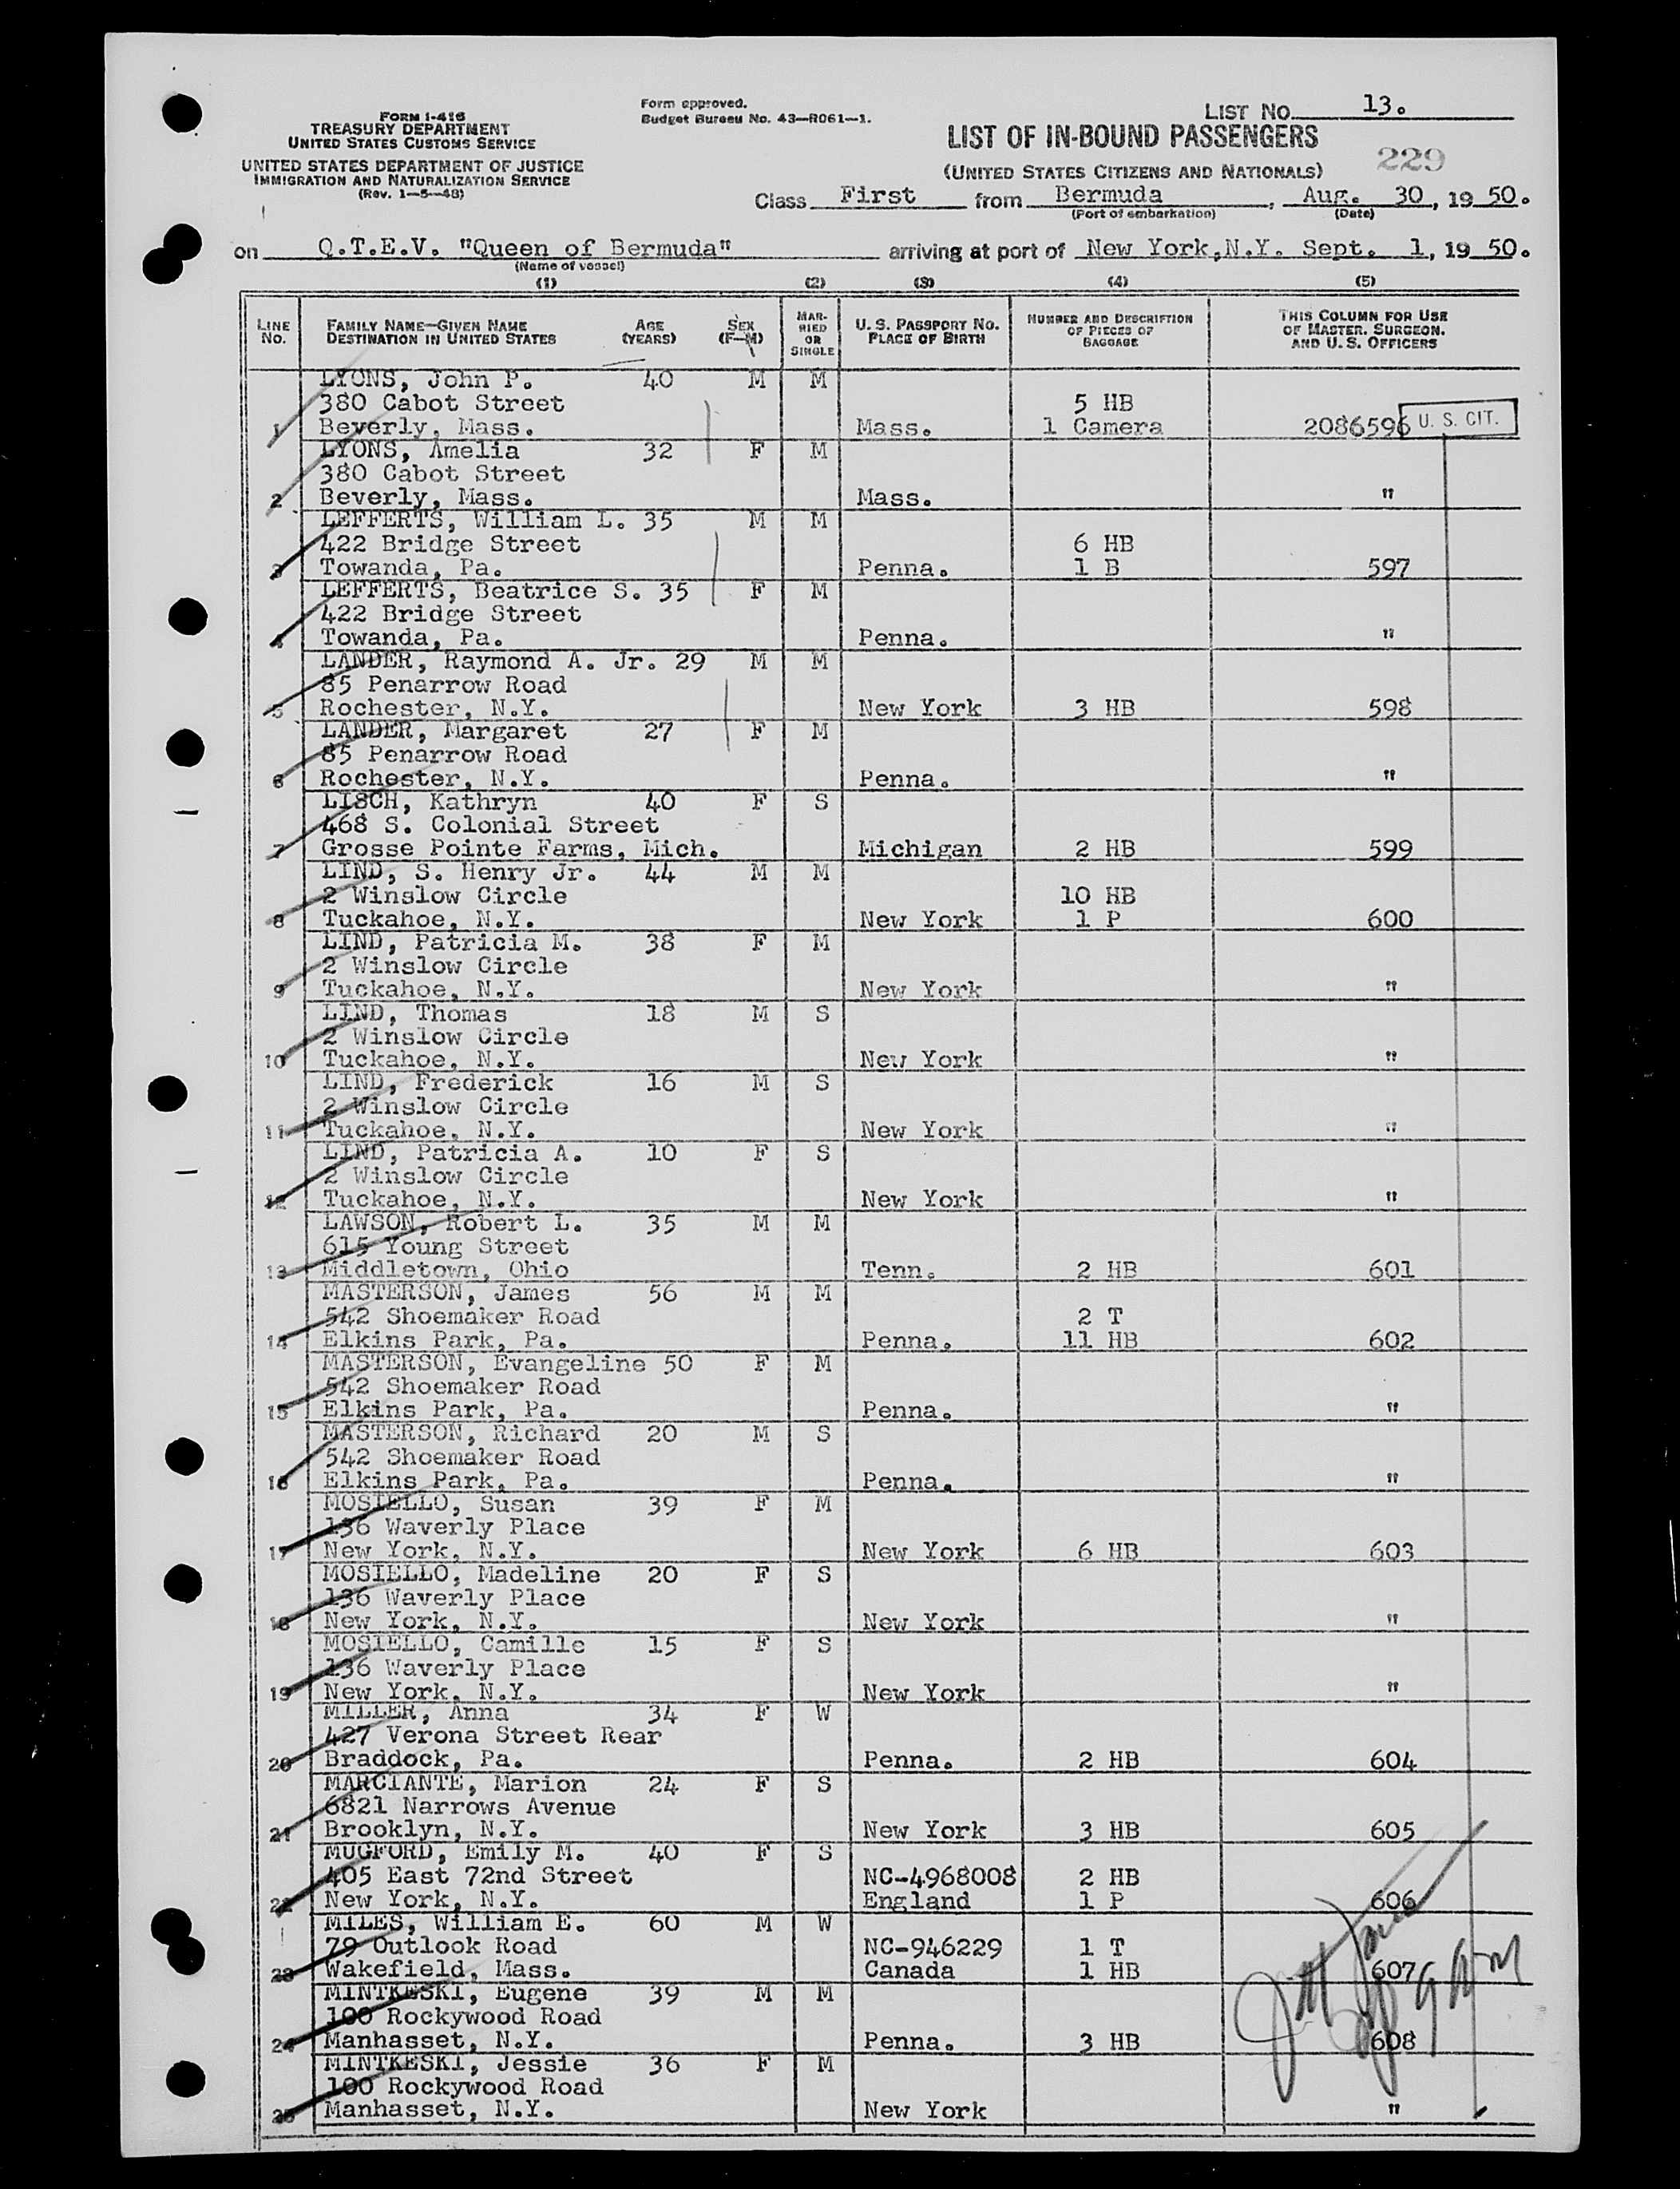 FORM I-416
TREASURY DEPARTMENT
UNITED STATES CUSTOMS SERVICE
UNITED STATES DEPARTMENT OF JUSTICE
IMMIGRATION AND NATURALIZATION SERVICE
(Rev. 1-5-48)
Form approved.
Budget Bureau No. 43-R061-1.
LIST NO. 13.
LIST OF IN-BOUND PASSENGERS
229
(UNITED STATES CITIZENS AND NATIONALS)
Class First from Bermuda, Aug. 30, 19 50.
(Port of embarkation) (Date)
on Q.T.E.V. "Queen of Bermuda" arriving at port of New York,N.Y. Sept. 1, 19 50.
(Name of vessel)
(1) (2) (3) (4) (5)
LINE NO. FAMILY NAME—GIVEN NAME DESTINATION IN UNITED STATES AGE (YEARS) SEX (F—M) MARRIED OR SINGLE U. S. PASSPORT NO. PLACE OF BIRTH NUMBER AND DESCRIPTION OF PIECES OF BAGGAGE THIS COLUMN FOR USE OF MASTER, SURGEON, AND U. S. OFFICERS
LYONS, John P. 40 M M
380 Cabot Street 5 HB
1 Beverly, Mass. Mass. 1 Camera 2086596 U. S. CIT.
LYONS, Amelia 32 F M
380 Cabot Street
2 Beverly, Mass. Mass. "
LEFFERTS, William L. 35 M M
422 Bridge Street 6 HB
3 Towanda, Pa. Penna. 1 B 597
LEFFERTS, Beatrice S. 35 F M
422 Bridge Street
4 Towanda, Pa. Penna. "
LANDER, Raymond A. Jr. 29 M M
85 Penarrow Road
5 Rochester, N.Y. New York 3 HB 598
LANDER, Margaret 27 F M
85 Penarrow Road
6 Rochester, N.Y. Penna. "
LISCH, Kathryn 40 F S
468 S. Colonial Street
7 Grosse Pointe Farms, Mich. Michigan 2 HB 599
LIND, S. Henry Jr. 44 M M
2 Winslow Circle 10 HB
8 Tuckahoe, N.Y. New York 1 P 600
LIND, Patricia M. 38 F M
2 Winslow Circle
9 Tuckahoe, N.Y. New York "
LIND, Thomas 18 M S
2 Winslow Circle
10 Tuckahoe, N.Y. New York "
LIND, Frederick 16 M S
2 Winslow Circle
11 Tuckahoe, N.Y. New York "
LIND, Patricia A. 10 F S
2 Winslow Circle
12 Tuckahoe, N.Y. New York "
LAWSON, Robert L. 35 M M
615 Young Street
13 Middletown, Ohio Tenn. 2 HB 601
MASTERSON, James 56 M M
542 Shoemaker Road 2 T
14 Elkins Park, Pa. Penna. 11 HB 602
MASTERSON, Evangeline 50 F M
542 Shoemaker Road
15 Elkins Park, Pa. Penna. "
MASTERSON, Richard 20 M S
542 Shoemaker Road
16 Elkins Park, Pa. Penna. "
MOSIELLO, Susan 39 F M
136 Waverly Place
17 New York, N.Y. New York 6 HB 603
MOSIELLO, Madeline 20 F S
136 Waverly Place
18 New York, N.Y. New York "
MOSIELLO, Camille 15 F S
136 Waverly Place
19 New York, N.Y. New York "
MILLER, Anna 34 F W
427 Verona Street Rear
20 Braddock, Pa. Penna. 2 HB 604
MARCIANTE, Marion 24 F S
6821 Narrows Avenue
21 Brooklyn, N.Y. New York 3 HB 605
MUGFORD, Emily M. 40 F S
405 East 72nd Street NC-4968008 2 HB
22 New York, N.Y. England 1 P 606
MILES, William E. 60 M W
79 Outlook Road NC-946229 1 T
23 Wakefield, Mass. Canada 1 HB 607
MINTKESKI, Eugene 39 M M
100 Rockywood Road
24 Manhasset, N.Y. Penna. 3 HB 608
MINTKESKI, Jessie 36 F M
100 Rockywood Road
25 Manhasset, N.Y. New York "